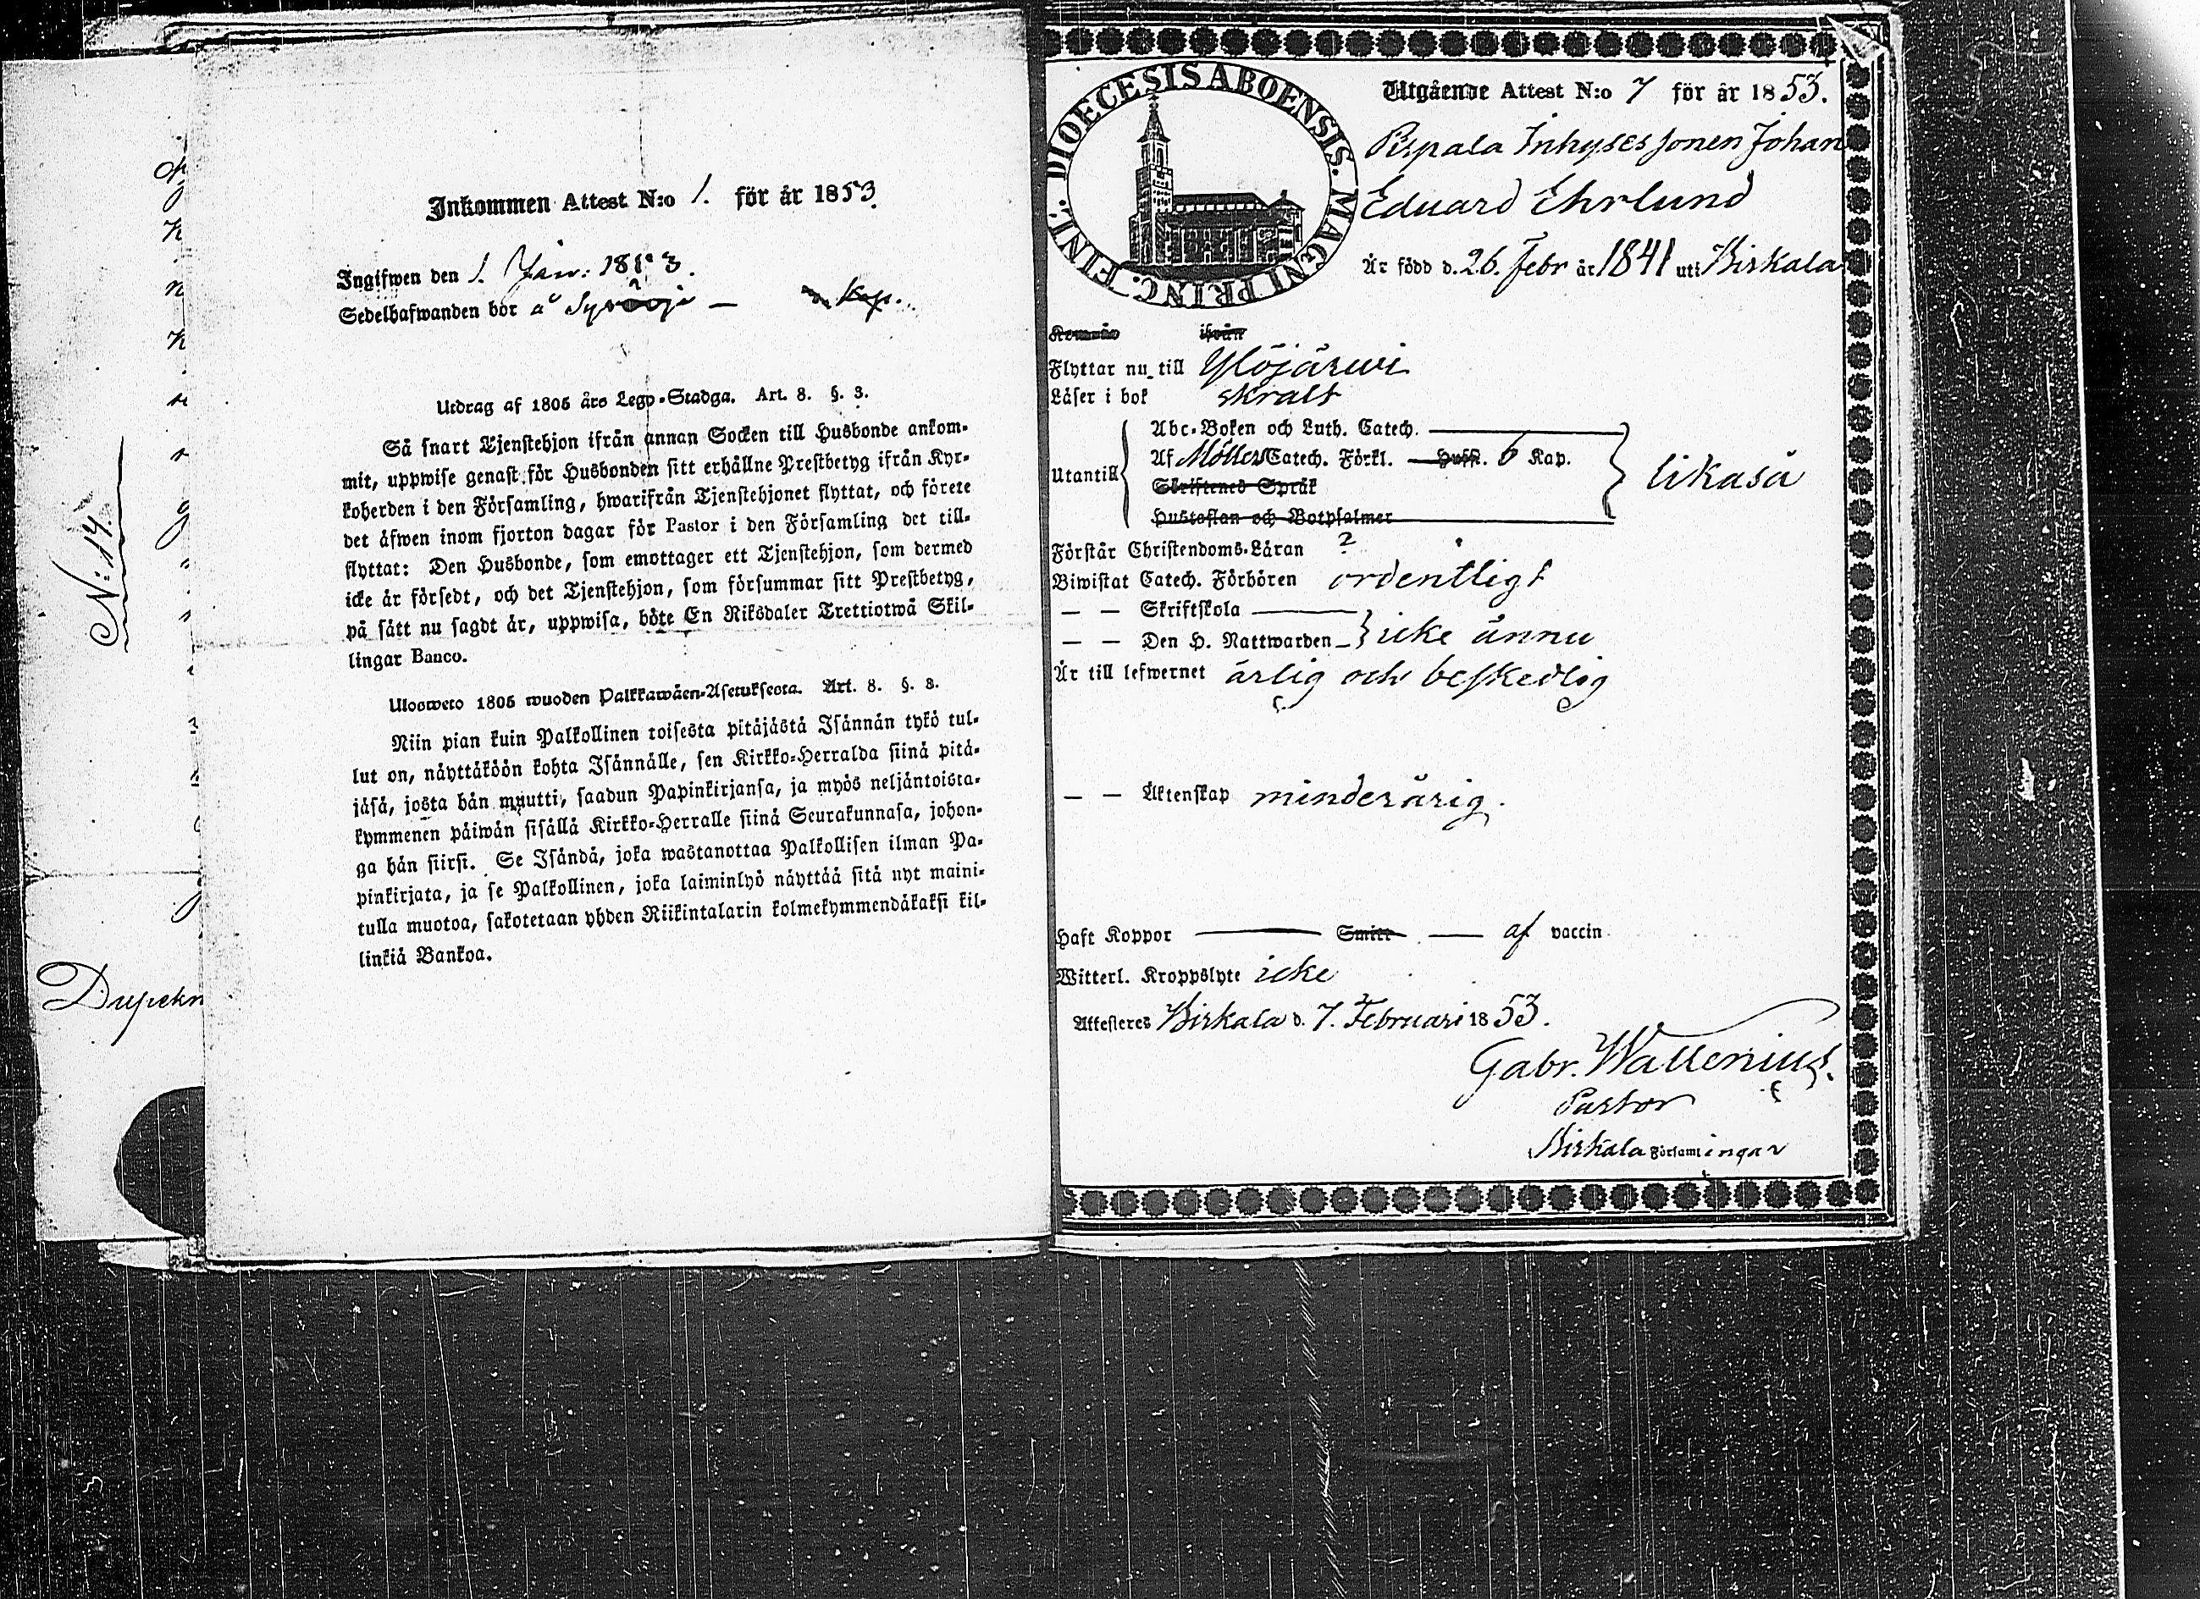 N: 14.
Inkommen Attest N:o 1. för år 1853.
Ingifwen den 1. Jan: 18
Sedelhafwanden bor å
Utdrag af 1805 års Lego-Stadga. Art. 8. §. 3.
Så snart Tjenstehjon ifrån annan Socken till Husbonde ankom-
mit, uppwise genast för Husbonden sitt erhållne Prestbetyg ifrån Kyr-
koherden i den Församling, hwarifrån Tjenstehjonet flyttat, och förete
det äfwen inom fjorton dagar för Pastor i den Församling det till-
flyttat: Den Husbonde, som emottager ett Tjenstehjon, som dermed
icke är försedt, och det Tjenstehjon, som försummar sitt Prestbetyg,
på sätt nu sagdt är, uppwisa, böte En Riksdaler Trettiotwå Skil-
lingar Banco.
Ulosweto 1805 wuoden Palkkawäen-Asetuksesta. Art. 8. §. 3.
Niin pian kuin Palkollinen toisesta pitäjästä Isännän tykö tul-
lut on, näyttäköön kohta Isännälle, sen Kirkko-Herralda siinä pitä-
jäsä, josta hän muutti, saadun Papinkirjansa, ja myös neljäntoista-
kymmenen päiwän sisällä Kirkko-Herralle siinä Seurakunnasa, johon-
ga hän siirsi. Se Isändä, joka wastanottaa Palkollisen ilman Pa-
pinkirjata, ja se Palkollinen, joka laiminlyö näyttää sitä nyt maini-
tulla muotoa, sakotetaan yhden Riikintalarin kolmekymmendäkaksi kil-
linkiä Bankoa.
DIOECESIS ABOENSIS. MAGNI PRINC. FINL.
Utgående Attest N:o 7 för år 1853.
Pispala Inhysessonen Johan
Eduard Ehrlund
Är född d. 26. Febr år 1841 uti Birkala
Kommen ifrån
Flyttar nu till Ylöjärwi
Läser i bok skralt
Abc-Boken och Luth. Catech.
Utantill Af Möllers Catech. Förkl. Hufst. 6 Kap. likaså
Skriftenes Språk
Hustaflan och Botpsalmer
Förstår Christendoms-Läran ?
Biwistat Catech. Förhören ordentligt
— — Skriftskola
— — Den H. Nattwarden icke ännu
Är till lefwernet ärlig och beskedlig
— — Äktenskap minderårig.
Haft Koppor — Smitt — af vaccin
Witterl. Kroppslyte icke
Attesteres Birkala d. 7. Februari 1853.
Gabr. Wallenius.
Pastor
Birkala Församlingar